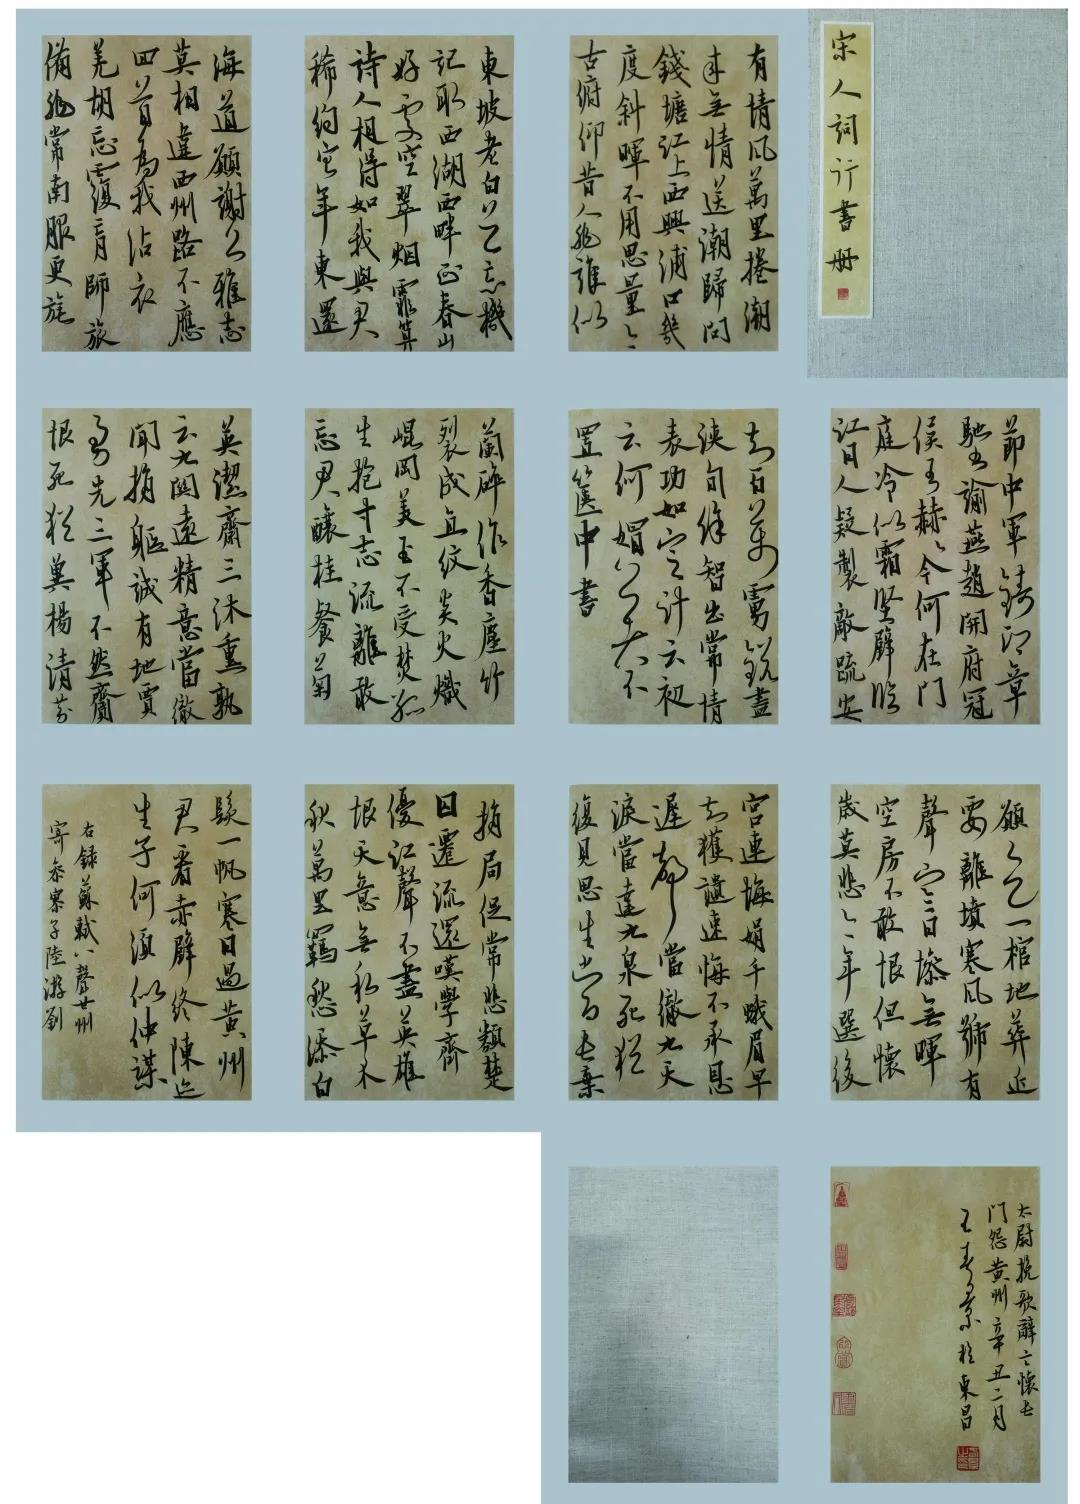 宋人詞行書冊
有情風萬里捲潮
來無情送潮歸問
錢塘江上西興浦口幾
度斜暉不用思量今
古俯仰昔人非誰似
東坡老白首忘機
記取西湖西畔正春山
好處空翠烟霏算
詩人相得如我與君
稀約它年東還
海道願謝公雅志
莫相違西州路不應
回首為我沾衣
羌胡忘覆育師旅
備非常南服更旄
節中軍鑄印章
馳書諭燕趙開府冠
侯王赫赫今何在門
庭冷似霜堅壁臨
江日人疑製敵疏安
知百萬虜銳盡
浹旬徐智出常情
表功如定計云初
云何媢公者不
置篋中書
蘭碎作香塵竹
裂成直紋炎火熾
崐岡美玉不受焚孤
生抱寸志流離敢
忘君釀桂餐菊
英潔齋三沐熏孰
云九關遠精意當徹
聞捐軀誠有地賈
勇先三軍不然齎
恨死猶冀揚清芬
願公乞一棺地葬近
要離墳寒風號有
聲寒日慘無暉
空房不敢恨但懷
歲莫悲今年選後
宮連悔娟千蛾眉早
知獲譴速悔不承恩
遲聲當徹九天
淚當達九泉死猶
復見思生當長棄
捐局促常悲類楚
囚遷流還嘆學齊
優江聲不盡英雄
恨天意無私草木
秋萬里羈愁添白
髮一帆寒日過黃州
君看赤壁終陳迹
生子何須似仲謀
右錄蘇軾八聲甘州
寄參寥子陸游劉
太尉挽歌辭言懷長
門怨黃州辛丑二月
王春於東昌